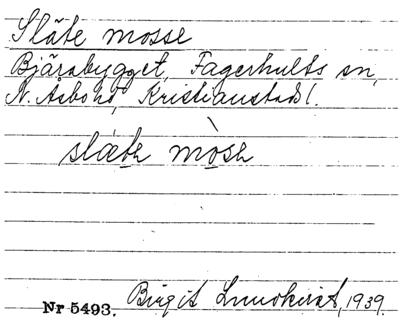 Slåte mosse
Bjärabygget, Fagerhults sn,
N. Åsbo hd, Kristianstads l.
slæta mòsa
Nr 5493. Birgit Lundkvist, 1939.